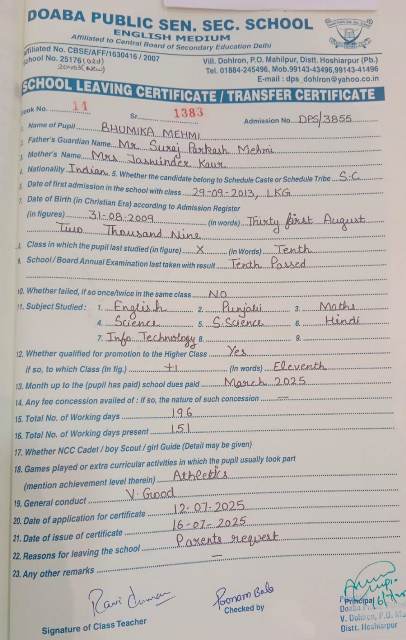 DOABA PUBLIC SEN. SEC. SCHOOL
ENGLISH MEDIUM
Affiliated to Central Board of Secondary Education Delhi
Affiliated No. CBSE/AFF/1630416 / 2007
School No. 25176 (old)
20453 (New)
Vill. Dohlron, P.O. Mahilpur, Distt. Hoshiarpur (Pb.)
Tel. 01884-245496, Mob.99143-43496,99143-41496
E-mail : dps_dohlron@yahoo.co.in
SCHOOL LEAVING CERTIFICATE / TRANSFER CERTIFICATE
Book No. 14 Sr. 1383 Admission No. DPS/3855
1. Name of Pupil BHUMIKA MEHMI
2. Father's Guardian Name Mr. Suraj Parkash Mehmi
3. Mother's Name Mrs Jaswinder Kaur
4. Nationality Indian 5. Whether the candidate belong to Schedule Caste or Schedule Tribe S.C
6. Date of first admission in the school with class 29-09-2013, LKG
7. Date of Birth (in Christian Era) according to Admission Register
(in figures) 31-08-2009 (in words) Thirty first August
Two Thousand Nine
8. Class in which the pupil last studied (in figure) X (in Words) Tenth
9. School / Board Annual Examination last taken with result Tenth Passed
10. Whether failed, if so once/twice in the same class NO
11. Subject Studied : 1. English 2. Punjabi 3. Maths
4. Science 5. S.Science 6. Hindi
7. Info. Technology 8. 9.
12. Whether qualified for promotion to the Higher Class Yes
if so, to which Class (in fig.) +1 (in words) Eleventh
13. Month up to the (pupil has paid) school dues paid March 2025
14. Any fee concession availed of : if so, the nature of such concession —
15. Total No. of Working days 196
16. Total No. of Working days present 151
17. Whether NCC Cadet / boy Scout / girl Guide (Detail may be given)
18. Games played or extra curricular activities in which the pupil usually took part
(mention achievement level therein) Athletics
19. General conduct V. Good
20. Date of application for certificate 12-07-2025
21. Date of issue of certificate 16-07-2025
22. Reasons of leaving the school Parents request
23. Any other remarks —
Ravi Kumar
Poonam Bala
Signature of Class Teacher
Checked by
Principal
V. Dohlron, P.O. Ma
Distt. Hoshiarpur